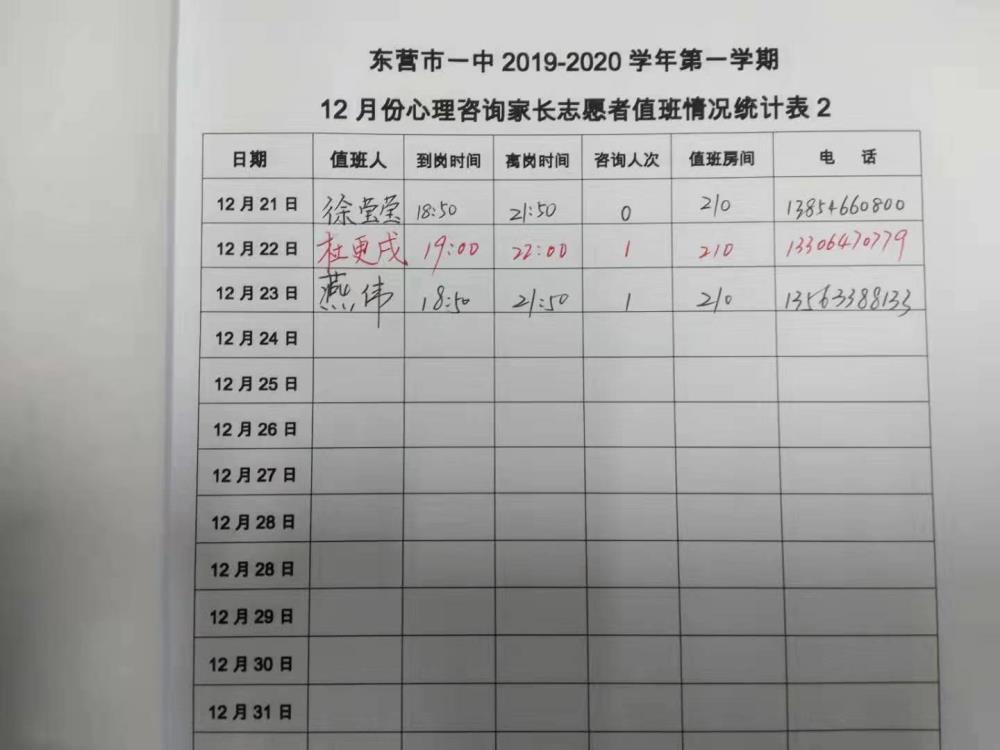 东营市一中 2019-2020 学年第一学期
12 月份心理咨询家长志愿者值班情况统计表 2
日期 值班人 到岗时间 离岗时间 咨询人次 值班房间 电 话
12 月 21 日 徐莹莹 18:50 21:50 0 210 13854660800
12 月 22 日 杜更戌 19:00 22:00 1 210 13306470779
12 月 23 日 燕伟 18:50 21:50 1 210 13563388133
12 月 24 日
12 月 25 日
12 月 26 日
12 月 27 日
12 月 28 日
12 月 28 日
12 月 29 日
12 月 30 日
12 月 31 日